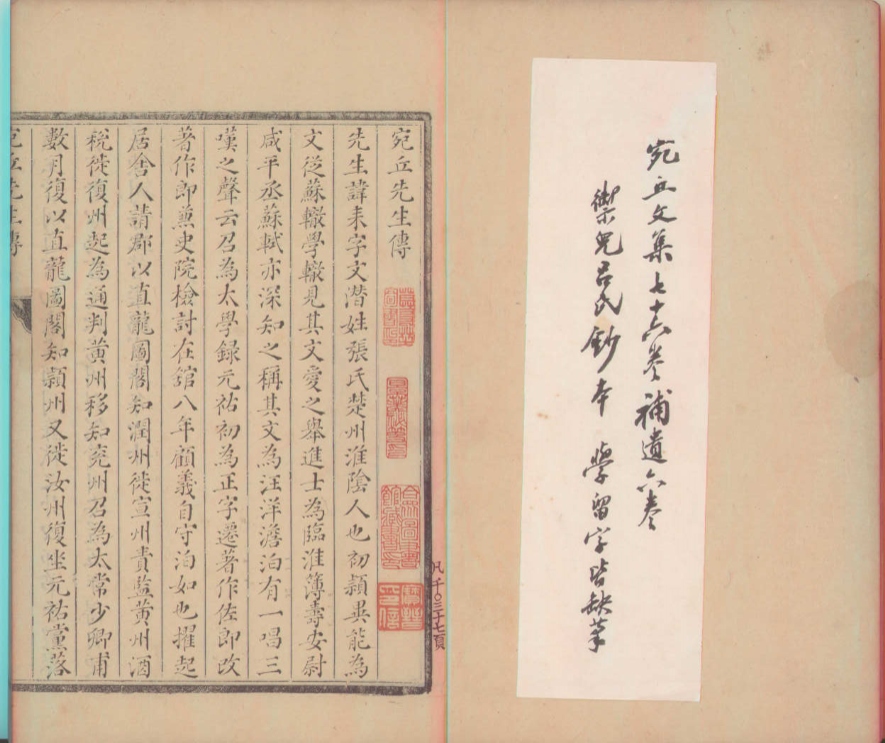 宛丘文集七十六卷補遺六卷
禦兒呂氏鈔本 學留字皆缺筆
宛丘先生傳
先生諱耒字文潛姓張氏楚州淮陰人也初穎異能為
文從蘇轍學轍見其文愛之舉進士為臨淮簿壽安尉
咸平丞蘇軾亦深知之稱其文為汪洋澹泊有一唱三
嘆之聲云召為太學録元祐初為正字遷著作佐郎改
著作郎兼史院檢討在館八年顧義自守泊如也擢起
居舍人請郡以直龍圖閣知潤州徙宣州責監黃州酒
稅徙復州起為通判黃州移知兖州召為太常少卿甫
數月復以直龍圖閣知潁州又徙汝州復坐元祐黨落
宛丘先生傳
凡千〇三十七頁